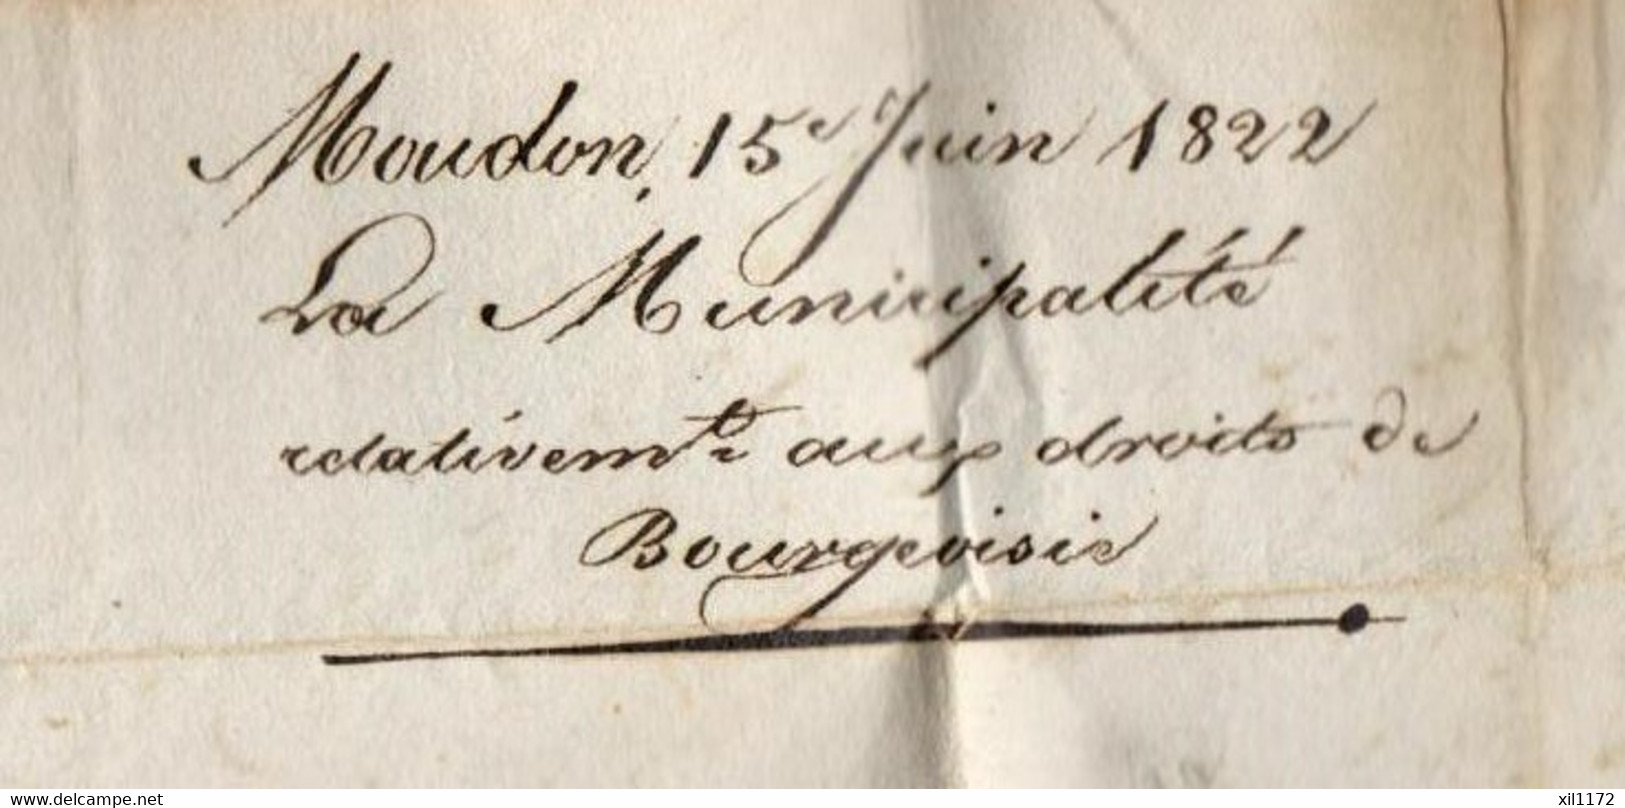 Moudon, 15e Juin 1822
La Municipalité
relativemt aux droits de
Bourgeoisie
www.delcampe.net
xil1172